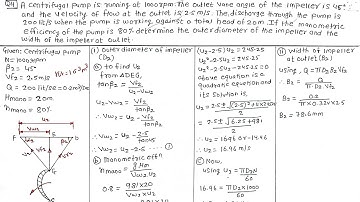 Q4 A centrifugal pump is running at 1000rpm. The outlet vane angle of the impeller is 45°
and the velocity of flow at the outlet is 2.5m/s. The discharge through the pump is
200 lit/s when the pump is working against a total head of 20m. If the manometric
efficiency of the pump is 80% determine the outer diameter of the impeller and the
width of the impeller at outlet.
Given: Centrifugal pump
N = 1000rpm
β₂ = 45°
Vf₂ = 2.5m/s
Q = 200 lit/sec = 0.2 m³/sec
Hmano = 20m
ηmano = 80%
(I) outer diameter of impeller
(D₂)
(a) to find U₂
from ΔDEG,
tanβ₂ = Vf₂
U₂ - Vw₂ = Vf₂
tanβ₂
∴ Vw₂ = U₂ - 2.5
tan45
∴ Vw₂ = U₂ - 2.5
(b) Manometric effn
ηmano = gHm
Vw₂.U₂
0.8 = 9.81×20
Vw₂U₂
(U₂-2.5)U₂ = 245.25
U₂² - 2.5U₂ = 245.25
U₂² - 2.5U₂ - 245.25 = 0
above equation is a
quadratic equation and
its solution is,
∴ U₂ = 16.96 or -14.46
∴ U₂ = 16.96 m/s
(c) Now,
using U₂ = πD₂N
60
16.96 = πD₂×1000
60
(II) width of impeller
at outlet (B₂)
using, Q = πD₂B₂Vf₂
∴ B₂ = Q
πD₂Vf₂
B₂ = 0.2